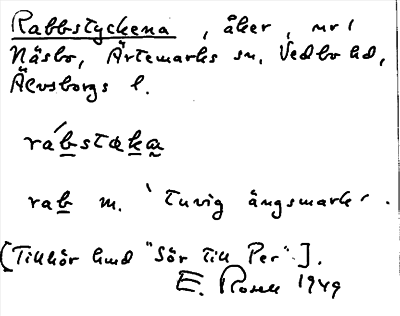 Rabbstyckena, åker, nr 1
Näsbo, Ärtemarks sn, Vedbo hd,
Älvsborgs l.
rábstæka
rab m. 'tuvig ängsmark'.
[Tillhör hmd "Sör till Per"].
E. Rosell 1949